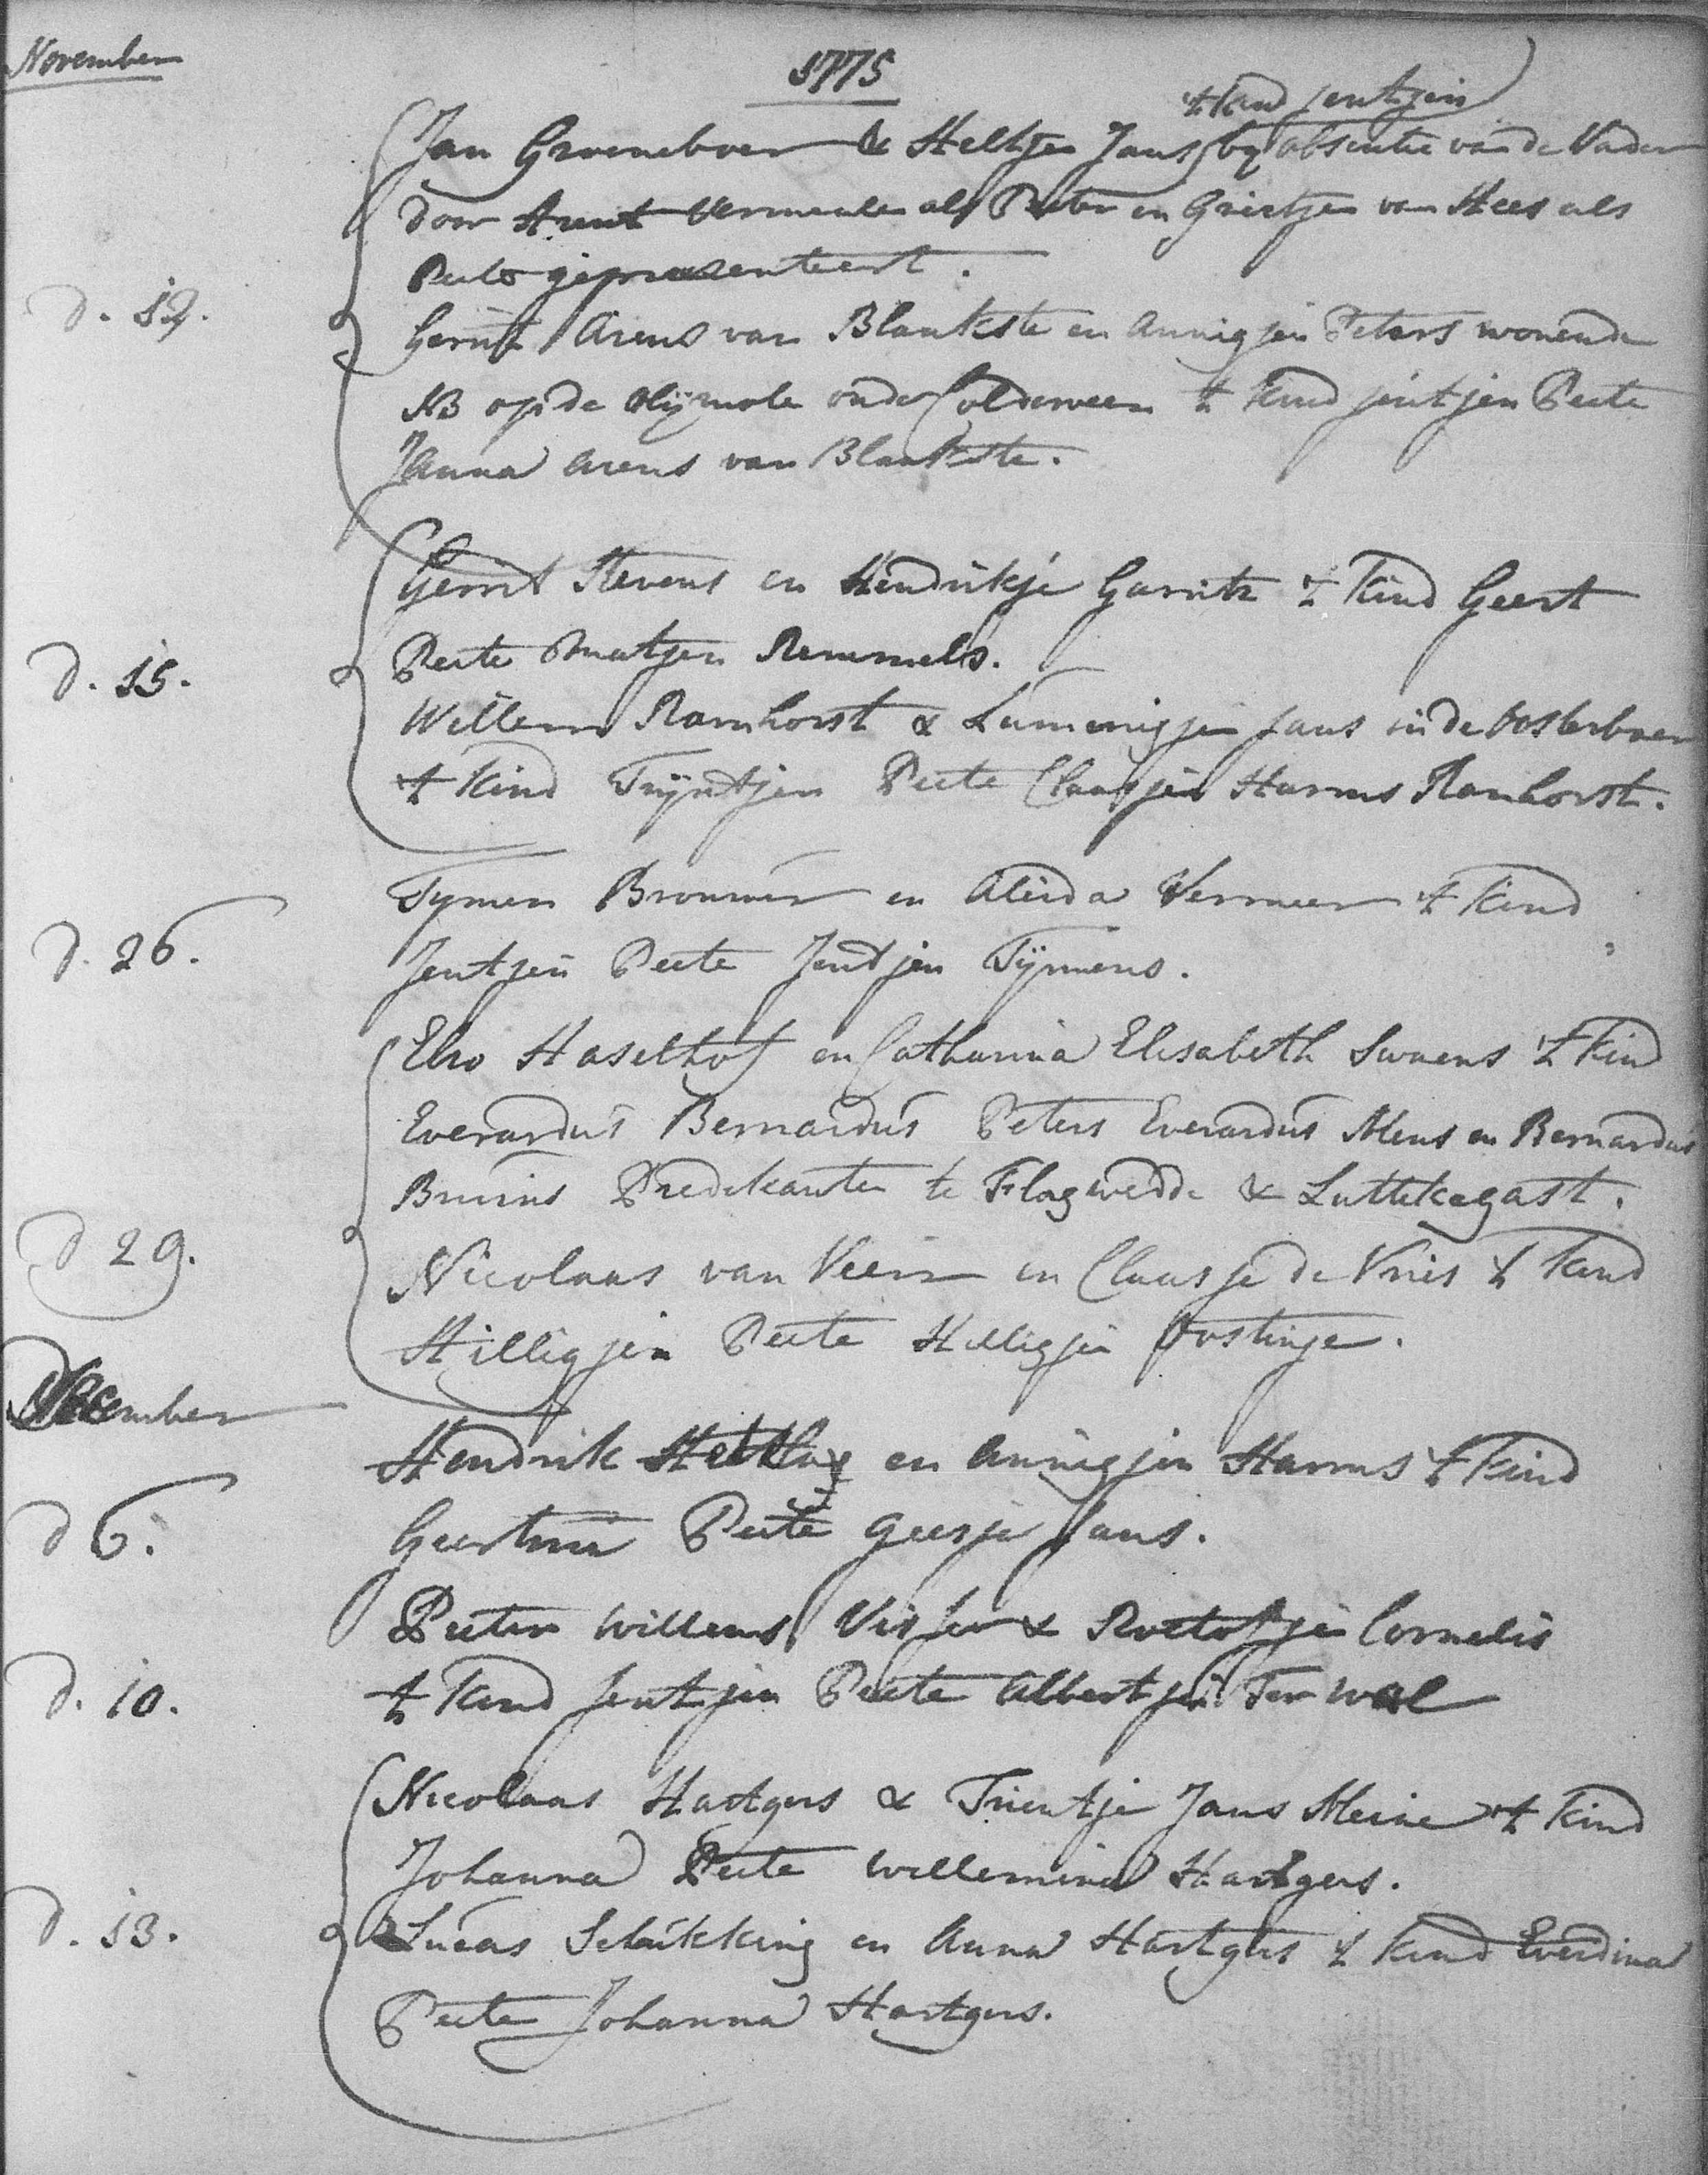 November
1775
't kind jentjen
Jan Groeneboer & Heltjen Jans by absentie van de Vader
door Arent Vermeulen als Peter en Grietjen van Hees als
Peete gepraesenteert.
d. 12.
Gerrit Arens van Blankste en Annigjen Peters wonende
NB op de Olijmole onder Colderveen 't kind jentjen Peete
Janna Arens van Blankste.
Gerrit Stevens en Hendrikje Garritz 't kind Geert
d. 15.
Peete Remmels.
Willem Ramhorst & Lummigjen Jans in de Oosterboer
't kind Trijntjen Peete Claasjen Harms Ramhorst.
Tymen Brouwer en Aleida Vermeer 't kind
d. 26.
Jentjen Peete Jentjen Tijmens.
Elso Haselhof en Catharina Elisabeth Swaens 't kind
Everardus Bernardus Peters Everardus Mens en Bernardus
Bruins Predekanten te Flagwedde & Luttekegast.
d 29.
Nicolaas van Veen en Claasje de Vries 't kind
Hilligjen Peete Hilligjen Oostinge.
December
Hendrik en Annigjen Harms 't kind
d 6.
Geertruit Peete Geesje Jans.
Peeter Willems Visser & Roelofjen Cornelis
d. 10.
't kind Jentjen Peete Albertjen Ter Wal
Nicolaas Hartgers & Trientje Jans Meine 't kind
Johanna Peete Willemina Hartgers.
d. 13.
Lucas Schukking en Anna Hartgers 't kind Everdina
Peete Johanna Hartgers.